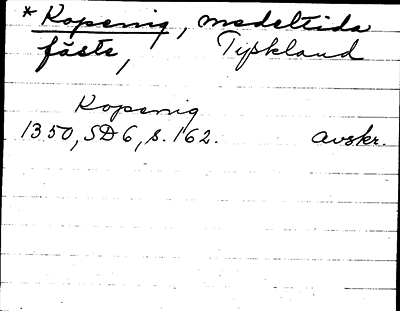 * Kopenig, medeltida
fäste, Tyskland
Kopenig
1350, SD6, s. 162. avskr.